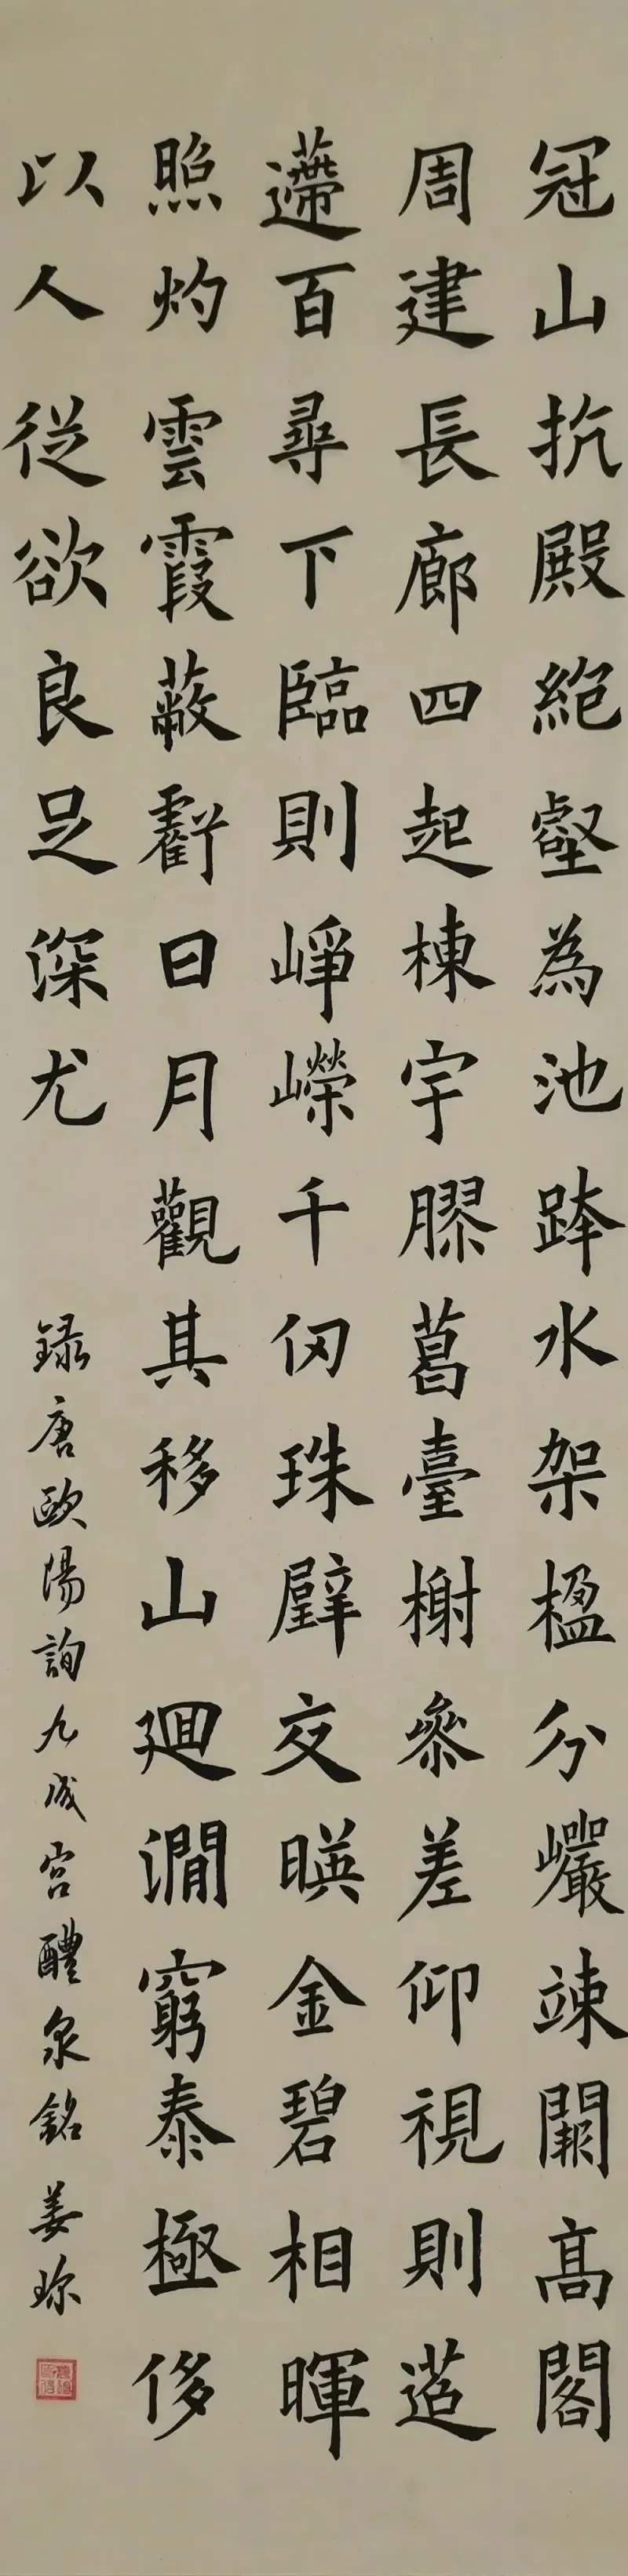 冠山抗殿絕壑為池跨水架楹分巖竦闕高閣
周建長廊四起棟宇膠葛臺榭參差仰視則迢
遰百尋下臨則崢嶸千仞珠璧交暎金碧相暉
照灼雲霞蔽虧日月觀其移山迴澗窮泰極侈
以人從欲良足深尤
録唐歐陽詢九成宮醴泉銘姜珎